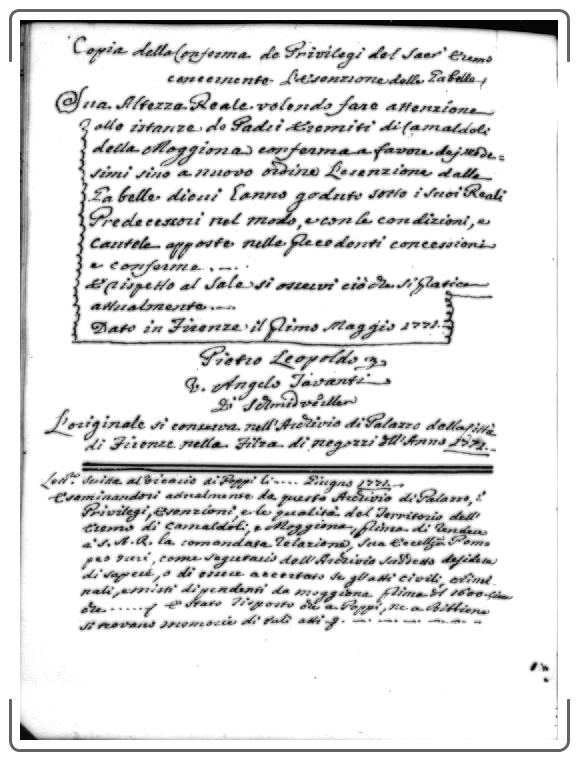 Copia della Conferma de Privilegi del Sacr Eremo
concernente L'Esenzione delle Tabelle
Sua Altezza Reale volendo fare attenzione
alle istanze de Padri Eremiti di Camaldoli
della Moggiona conferma a favore dej mede=
simi sino a nuovo ordine L'esenzione dalle
Tabelle di cui l'anno goduto sotto i suoi Reali
Predecessori nel modo, e con le condizioni, e
Cautele apposte nelle Precedenti concessioni
e conforme . _ .
E rispetto al Sale si osservi ciò che si Pratica
attualmente . _
Dato in Firenze il Primo Maggio 1771.
Pietro Leopoldo
V. Angelo Tavanti
Di Schmidveiller
L'originale si conserva nell'Archivio di Palazzo della Città
di Firenze nella Filza di negozzi dell'Anno 1771.
Lettra scritta al Vicario di Poppi li .... Giugno 1771.
Esaminandosi attualmente da questo Archivio di Palazzo, i
Privilegi, Esenzioni, e le qualità del Territorio dell'
Eremo di Camaldoli, e Moggiona, Prima di rendere
a S. A. R. la comandata relazione, Sua Eccellza Pomp
peo neri, come Segretario dell'Archivio Suddetto desidera
di sapere, o di essere accertato se gli atti civili, crimi
nali, e misti dipendenti da moggiona Prima del 1600
che ...... E Stato risposto che a Poppi, ne a Bibbiena
si trovano memorie di tali atti